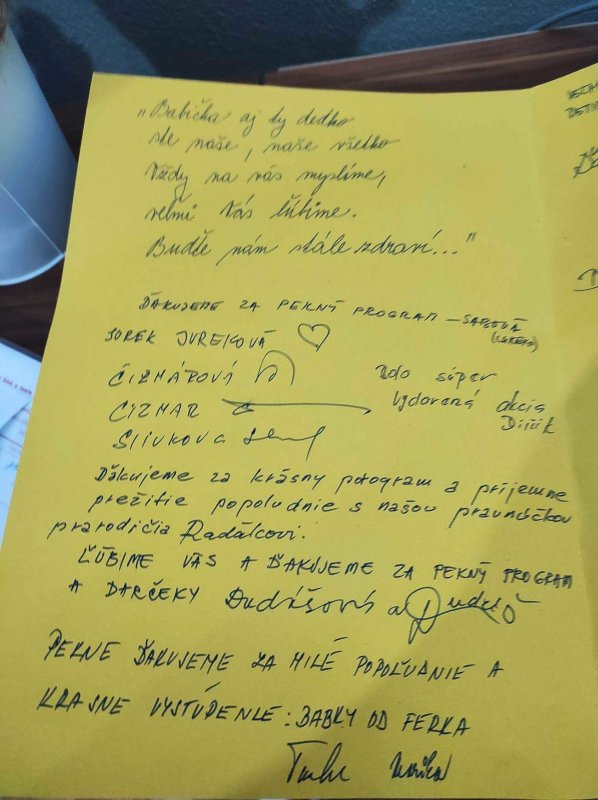 „Babička aj ty dedko
ste naše, naše všetko
Vždy na vás myslíme,
veľmi Vás ľúbime.
Buďte nám stále zdraví..."
ĎAKUJEME ZA PEKNÝ PROGRAM –
JUREK JUREKOVÁ
ČIZMÁROVÁ
CIZMAR
Bolo súper
Vydarená akcia
Slivkova
Ďakujeme za krásny program a príjemne
prežitie popoludnie s našou pravnúčkou
prarodičia Radálcovi.
ĽÚBIME VÁS A ĎAKUJEME ZA PEKNÝ PROGRAM
A DARČEKY Dudášová a
PEKNE ĎAKUJEME ZA MILÉ POPOĽUDNIE A
KRASNE VYSTÚPENIE: BABKY OD FERKA